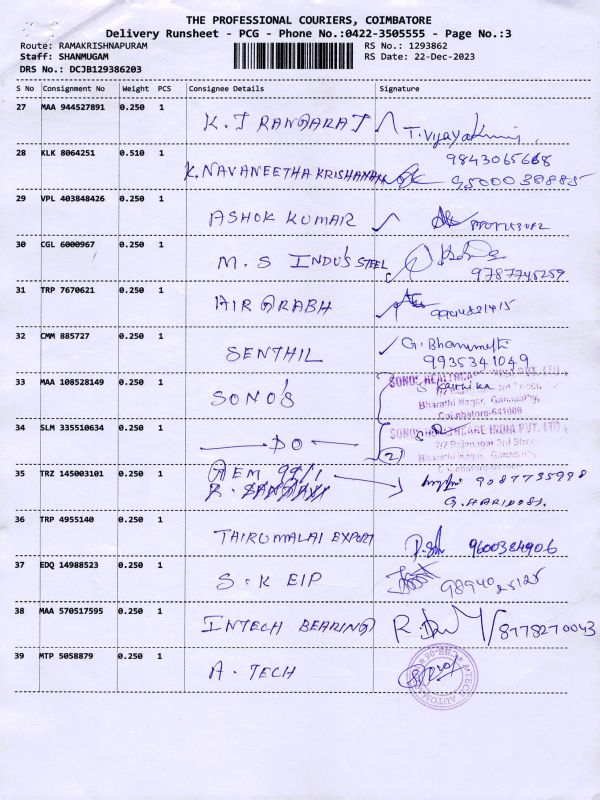 THE PROFESSIONAL COURIERS, COIMBATORE
Delivery Runsheet - PCG - Phone No.:0422-3505555 - Page No.:3
Route: RAMAKRISHNAPURAM RS No.: 1293862
Staff: SHANMUGAM RS Date: 22-Dec-2023
DRS No.: DCJB129386203
S No Consignment No Weight PCS Consignee Details Signature
27 MAA 944527891 0.250 1 K. J RANGARAJ T. Vijayakumar
28 KLK 8064251 0.510 1 K. NAVANEETHA KRISHANAN 9843065668
29 VPL 403848426 0.250 1 ASHOK KUMAR
30 CGL 6000967 0.250 1 M. S INDU'S STEEL
9787745259
31 TRP 7670621 0.250 1 AIR ARABH
32 CMM 885727 0.250 1 SENTHIL G. Bhanumathi
9935341049
33 MAA 108528149 0.250 1 SONO'S SONOS HEALTHCARE INDIA PVT. LTD.
Karthika
Bharathi Nagar, Ganapathy,
Coimbatore-641006
34 SLM 335510634 0.250 1 DO SONOS HEALTHCARE INDIA PVT. LTD.
3rd Street
Bharathi Nagar, Ganapathy
2
35 TRZ 145003101 0.250 1 9087735998
G. HARIDOSS.
36 TRP 4955140 0.250 1 THIRUMALAI EXPORT 9600384906
37 EDQ 14988523 0.250 1 S. K EIP
38 MAA 570517595 0.250 1 INTECH BEARING 8778270043
39 MTP 5058879 0.250 1 A. TECH